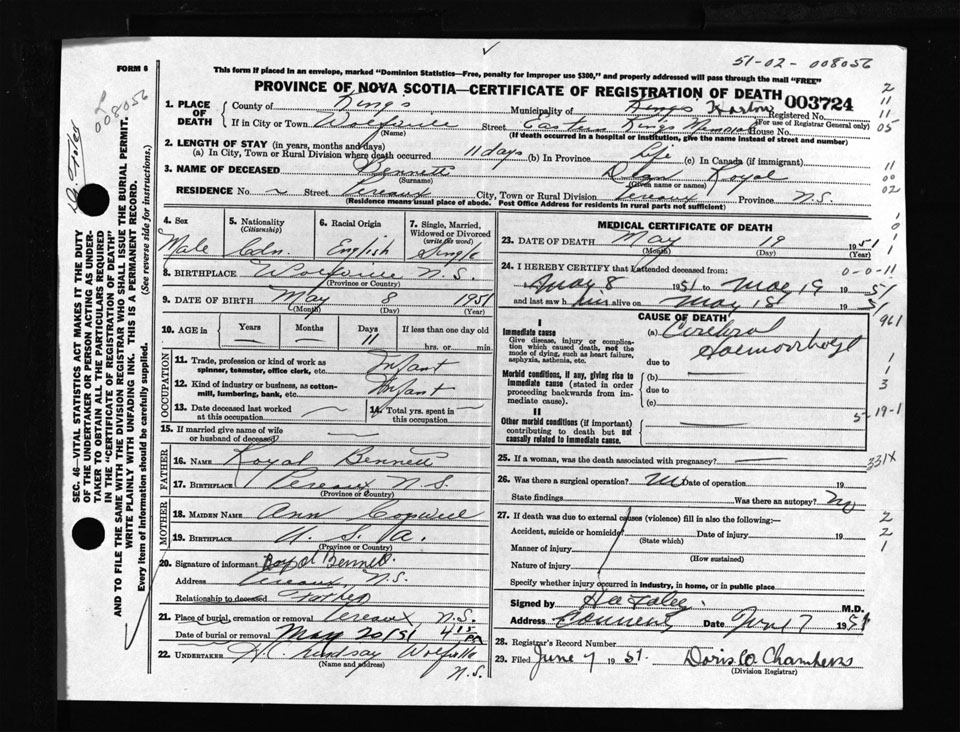 51-02-008056
FORM 6
This form if placed in an envelope, marked "Dominion Statistics—Free, penalty for improper use $300," and properly addressed will pass through the mail "FREE"
PROVINCE OF NOVA SCOTIA—CERTIFICATE OF REGISTRATION OF DEATH
003724
008056
1. PLACE OF DEATH { County of King's Municipality of Kings Registered No.
(For use of Registrar General only)
If in City or Town Wolfville Street Eastern Kings Memorial House No.
(Name) (If death occurred in a hospital or institution, give the name instead of street and number)
2. LENGTH OF STAY (in years, months and days)
(a) In City, Town or Rural Division where death occurred 11 days (b) In Province Life (c) In Canada (if immigrant)
3. NAME OF DECEASED Bennett Royal
(Surname) (Given name or names)
RESIDENCE No. ~ Street Pereaux City, Town or Rural Division Pereaux Province N.S.
(Residence means usual place of abode. Post Office Address for residents in rural parts not sufficient)
4. Sex Male
5. Nationality (Citizenship) Cdn.
6. Racial Origin English
7. Single, Married, Widowed or Divorced (write the word) Single
8. BIRTHPLACE Wolfville N.S.
(Province or Country)
9. DATE OF BIRTH May 8 1951
(Month) (Day) (Year)
10. AGE in Years Months Days If less than one day
11 hrs. or min.
OCCUPATION
11. Trade, profession or kind of work as spinner, teamster, office clerk, etc. Infant
12. Kind of industry or business, as cotton-mill, lumbering, bank, etc. Infant
13. Date deceased last worked at this occupation
14. Total yrs. spent in this occupation
15. If married give name of wife or husband of deceased
FATHER
16. NAME Royal Bennett
17. BIRTHPLACE Pereaux N.S.
(Province or Country)
MOTHER
18. MAIDEN NAME Ann
19. BIRTHPLACE U.S.A.
(Province or Country)
20. Signature of informant Royal Bennett.
Address Pereaux, N.S.
Relationship to deceased Father
21. Place of burial, cremation or removal Pereaux N.S.
Date of burial or removal May 20/51 4 15 PM
22. UNDERTAKER H.C. Lindsay Wolfville
(Name and address) N.S.
MEDICAL CERTIFICATE OF DEATH
23. DATE OF DEATH May 19 1951
(Month) (Day) (Year)
24. I HEREBY CERTIFY that I attended deceased from: 0-0-11
May 8 1951 to May 19 1951
and last saw him alive on May 18 1951
CAUSE OF DEATH 961
I
Immediate cause
Give disease, injury or complication which caused death, not the mode of dying, such as heart failure, asphyxia, asthenia, etc.
(a) Cerebral Haemorrhage
due to
Morbid conditions, if any, giving rise to immediate cause (stated in order proceeding backwards from immediate cause).
(b)
due to
(c)
II
Other morbid conditions (if important) contributing to death but not causally related to immediate cause.
5-19-1
25. If a woman, was the death associated with pregnancy? 331X
26. Was there a surgical operation? No Date of operation 19
State findings Was there an autopsy? No
27. If death was due to external causes (violence) fill in also the following:—
Accident, suicide or homicide? Date of injury 19
(State which)
Manner of injury
(How sustained)
Nature of injury
Specify whether injury occurred in industry, in home, or in public place
Signed by M.D.
Address Canning Date June 7 1951
28. Registrar's Record Number
29. Filed June 7 1951. Doris Chambers
(Division Registrar)
SEC. 46—VITAL STATISTICS ACT MAKES IT THE DUTY
OF THE UNDERTAKER OR PERSON ACTING AS UNDER-
TAKER TO OBTAIN ALL THE PARTICULARS REQUIRED
IN THE "CERTIFICATE OF REGISTRATION OF DEATH"
AND TO FILE THE SAME WITH THE DIVISION REGISTRAR WHO SHALL ISSUE THE BURIAL PERMIT.
WRITE PLAINLY WITH UNFADING INK. THIS IS A PERMANENT RECORD.
Every item of information should be carefully supplied. (See reverse side for instructions.)
2
11
11
05
11
00
02
2
2
1